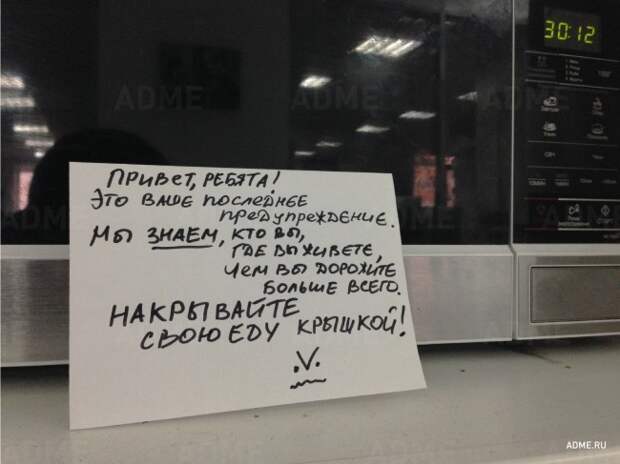 ПРИВЕТ, РЕБЯТА!
ЭТО ВАШЕ ПОСЛЕДНЕЕ
ПРЕДУПРЕЖДЕНИЕ.
МЫ ЗНАЕМ, КТО ВЫ,
ГДЕ ВЫ ЖИВЕТЕ,
ЧЕМ ВЫ ДОРОЖИТЕ
БОЛЬШЕ ВСЕГО.
НАКРЫВАЙТЕ
СВОЮ ЕДУ КРЫШКОЙ!
.V.
30:12
ADME
ADME
ADME.RU